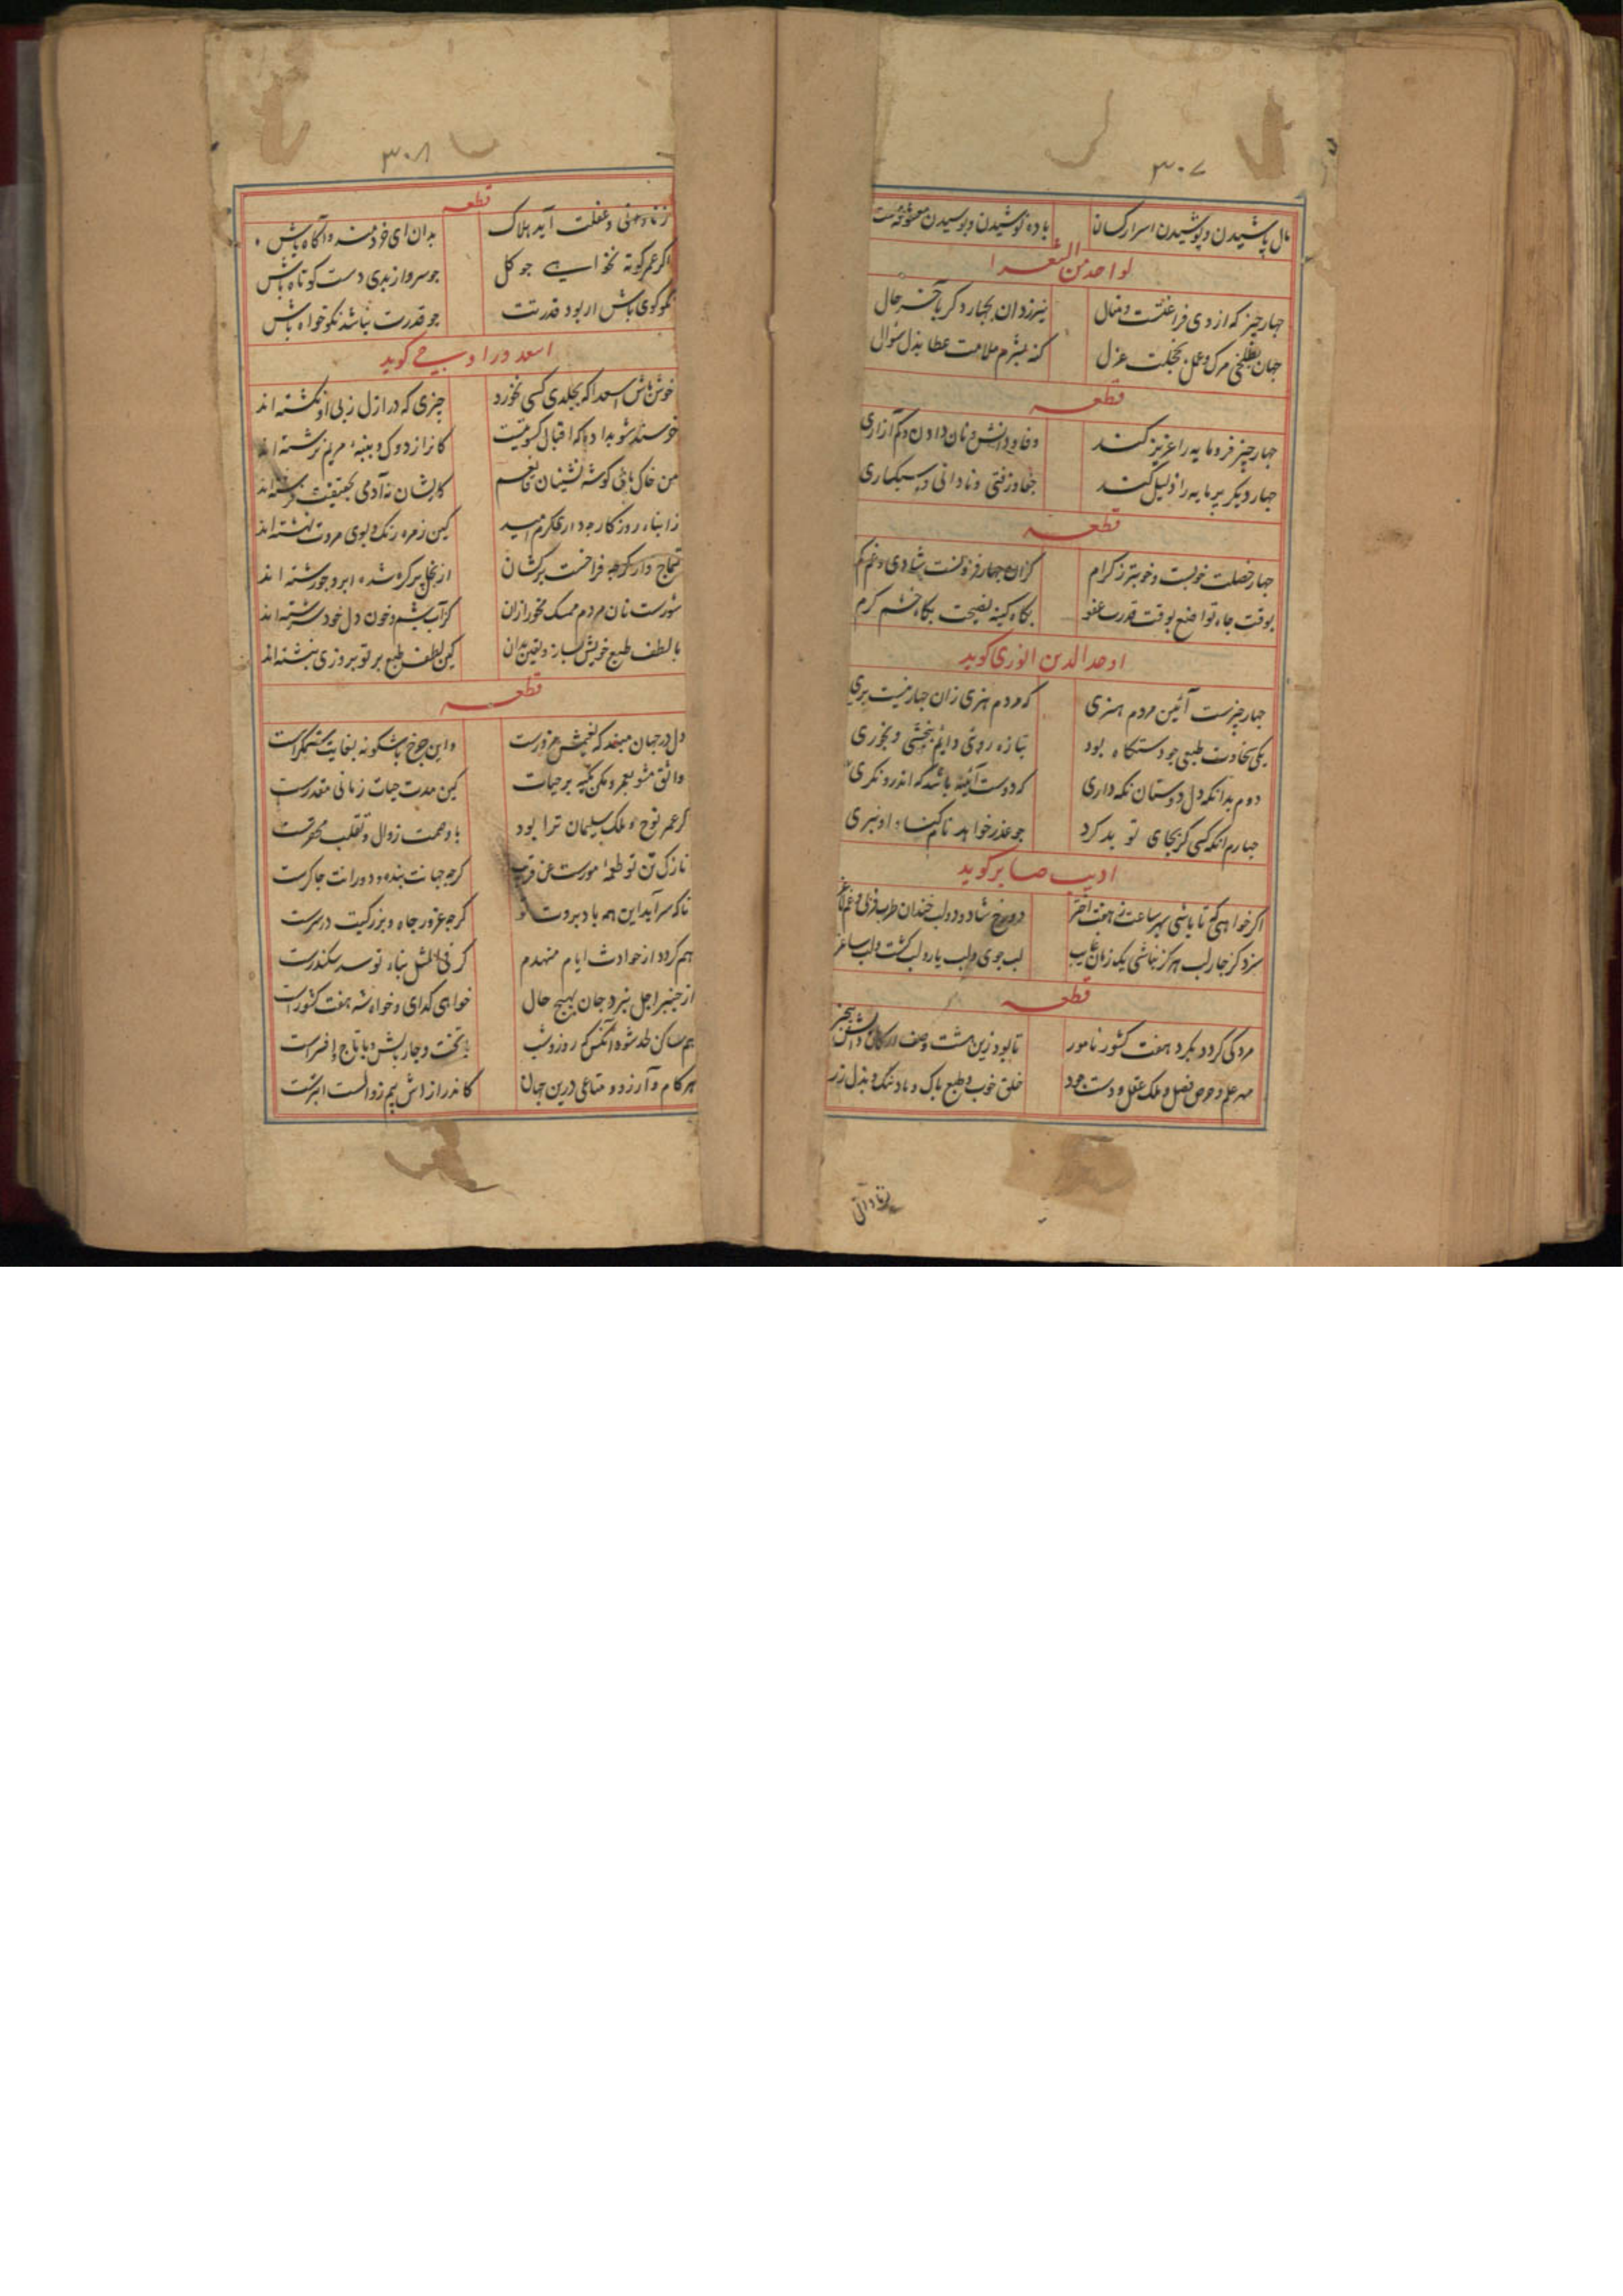 ۳۰۷
مال پاشیدن و پوشیدن اسرار کسان باده نوشیدن و بوسیدن معشوقه مست
لواحد من الشعرا
چهار چیز که از وی فراغتست و منال نیرزد آن بچهار دکر بآخر حال
جهان بتلخی مرک و عمل بخجلت عزل کنه بشرم ملامت عطا بذل سؤال
قطعه
چهار چیز فرومایه را عزیز کند وفا و دانش و نان دادن و کم آزاری
چهار دیکر پرمایه را ذلیل کند جفا و زفتی و نادانی و سبکساری
قطعه
چهار خصلت خوبست و خوبتر ز کرام کزان چهار فزونست شادی و غم کم
بوقت جاه تواضع بوقت قدرت عفو بکاه کینه نصیحت بکاه خشم کرم
اوحد الدین انوری کوید
چهار چیزست آئین مردم هنری که مردم هنری زان چهار نیست بری
یکی سخاوت طبعی چو دستکاه بود بتازه روئی دایم ببخشی و بخوری
دوم بدانکه دل دوستان نکه داری که دوست آئینه باشد که اندرو نکری
چهارم آنکه کسی کر بجای تو بد کرد چو عذر خواهد نام کناه او نبری
ادیب صابر کوید
اکر خواهی که تا باشی بهر ساعت ز هفت اختر دو رخ شاد و دو لب خندان طرب فزلی و غم
سزد کز چار لب هرکز نباشی یک زمان غایب لب جوی و لب یار و لب کشت و لب ساغر
قطعه
مرد کی کردد بکرد هفت کشور نامور تا بود زین هشت وصف ارکان
مهر علم و حرص فضل و ملک عقل و دست جود خلق خوب و طبع پاک و یاد نیک و بذل زر
ز نادانی
۳۰۸
قطعه
ز نادانی و غفلت آید هلاک بدان ای خردمند و آکاه باش
اکر عمر کوته نخواهی چو کل چو سرو از بدی دست کوتاه باش
نکو کوی باش ار بود قدرتت چو قدرت نباشد نکو خواه باش
اسعد در او بیجی کوید
خوش باش اسعدا که بجلدی کسی نخورد چیزی که در ازل ز پی او نکشته اند
خرسند شو بداده که اقبال کسوتیست کانرا ز دوک و پنبه مریم نرشته اند
من خاک پای کوشه نشینان کایشان نه آدمی بحقیقت فرشته اند
ز ابناء روزکار مدار کرم امید کین زمره رنک و بوی مروت نهشته اند
از بخل پر کره شده ابرو چو رشته اند
شورست نان مردم ممسک مخور ازان کز آب چشم و خون دل خود سرشته اند
با لطف طبع خویش بساز و یقین بدان کین لطف طبع بر تو بروزی نبشته اند
قطعه
دل در جهان مبند که نعیمش مزورست واین چرخ باشکونه بغایت ستمکرست
واثق مشو بعمر و مکن تکیه بر حیات کین مدت حیات زمانی مقدرست
کر عمر نوح و ملک سلیمان ترا بود با وصمت زوال و تقلب محقرست
نازک تن تو طعمه مورست عن قریب کر چه جهانت بنده و دورانت چاکرست
تا که سر آید این همه باد بروت تو کر چه غرور جاه و بزرکیت در سرست
هم کردد از حوادث ایام منهدم کر فی المثل بناء تو سد سکندرست
از چنبر اجل نبرد جان بهیچ حال خواهی کدای و خواه شه هفت کشورست
هم ساکن لحد شود آنکس که روز و شب با تخت و چار بالش و با تاج و افسرست
هر کام و آرزو و متاعی درین جهان کاندر ازاش بیم زوالست ابترست